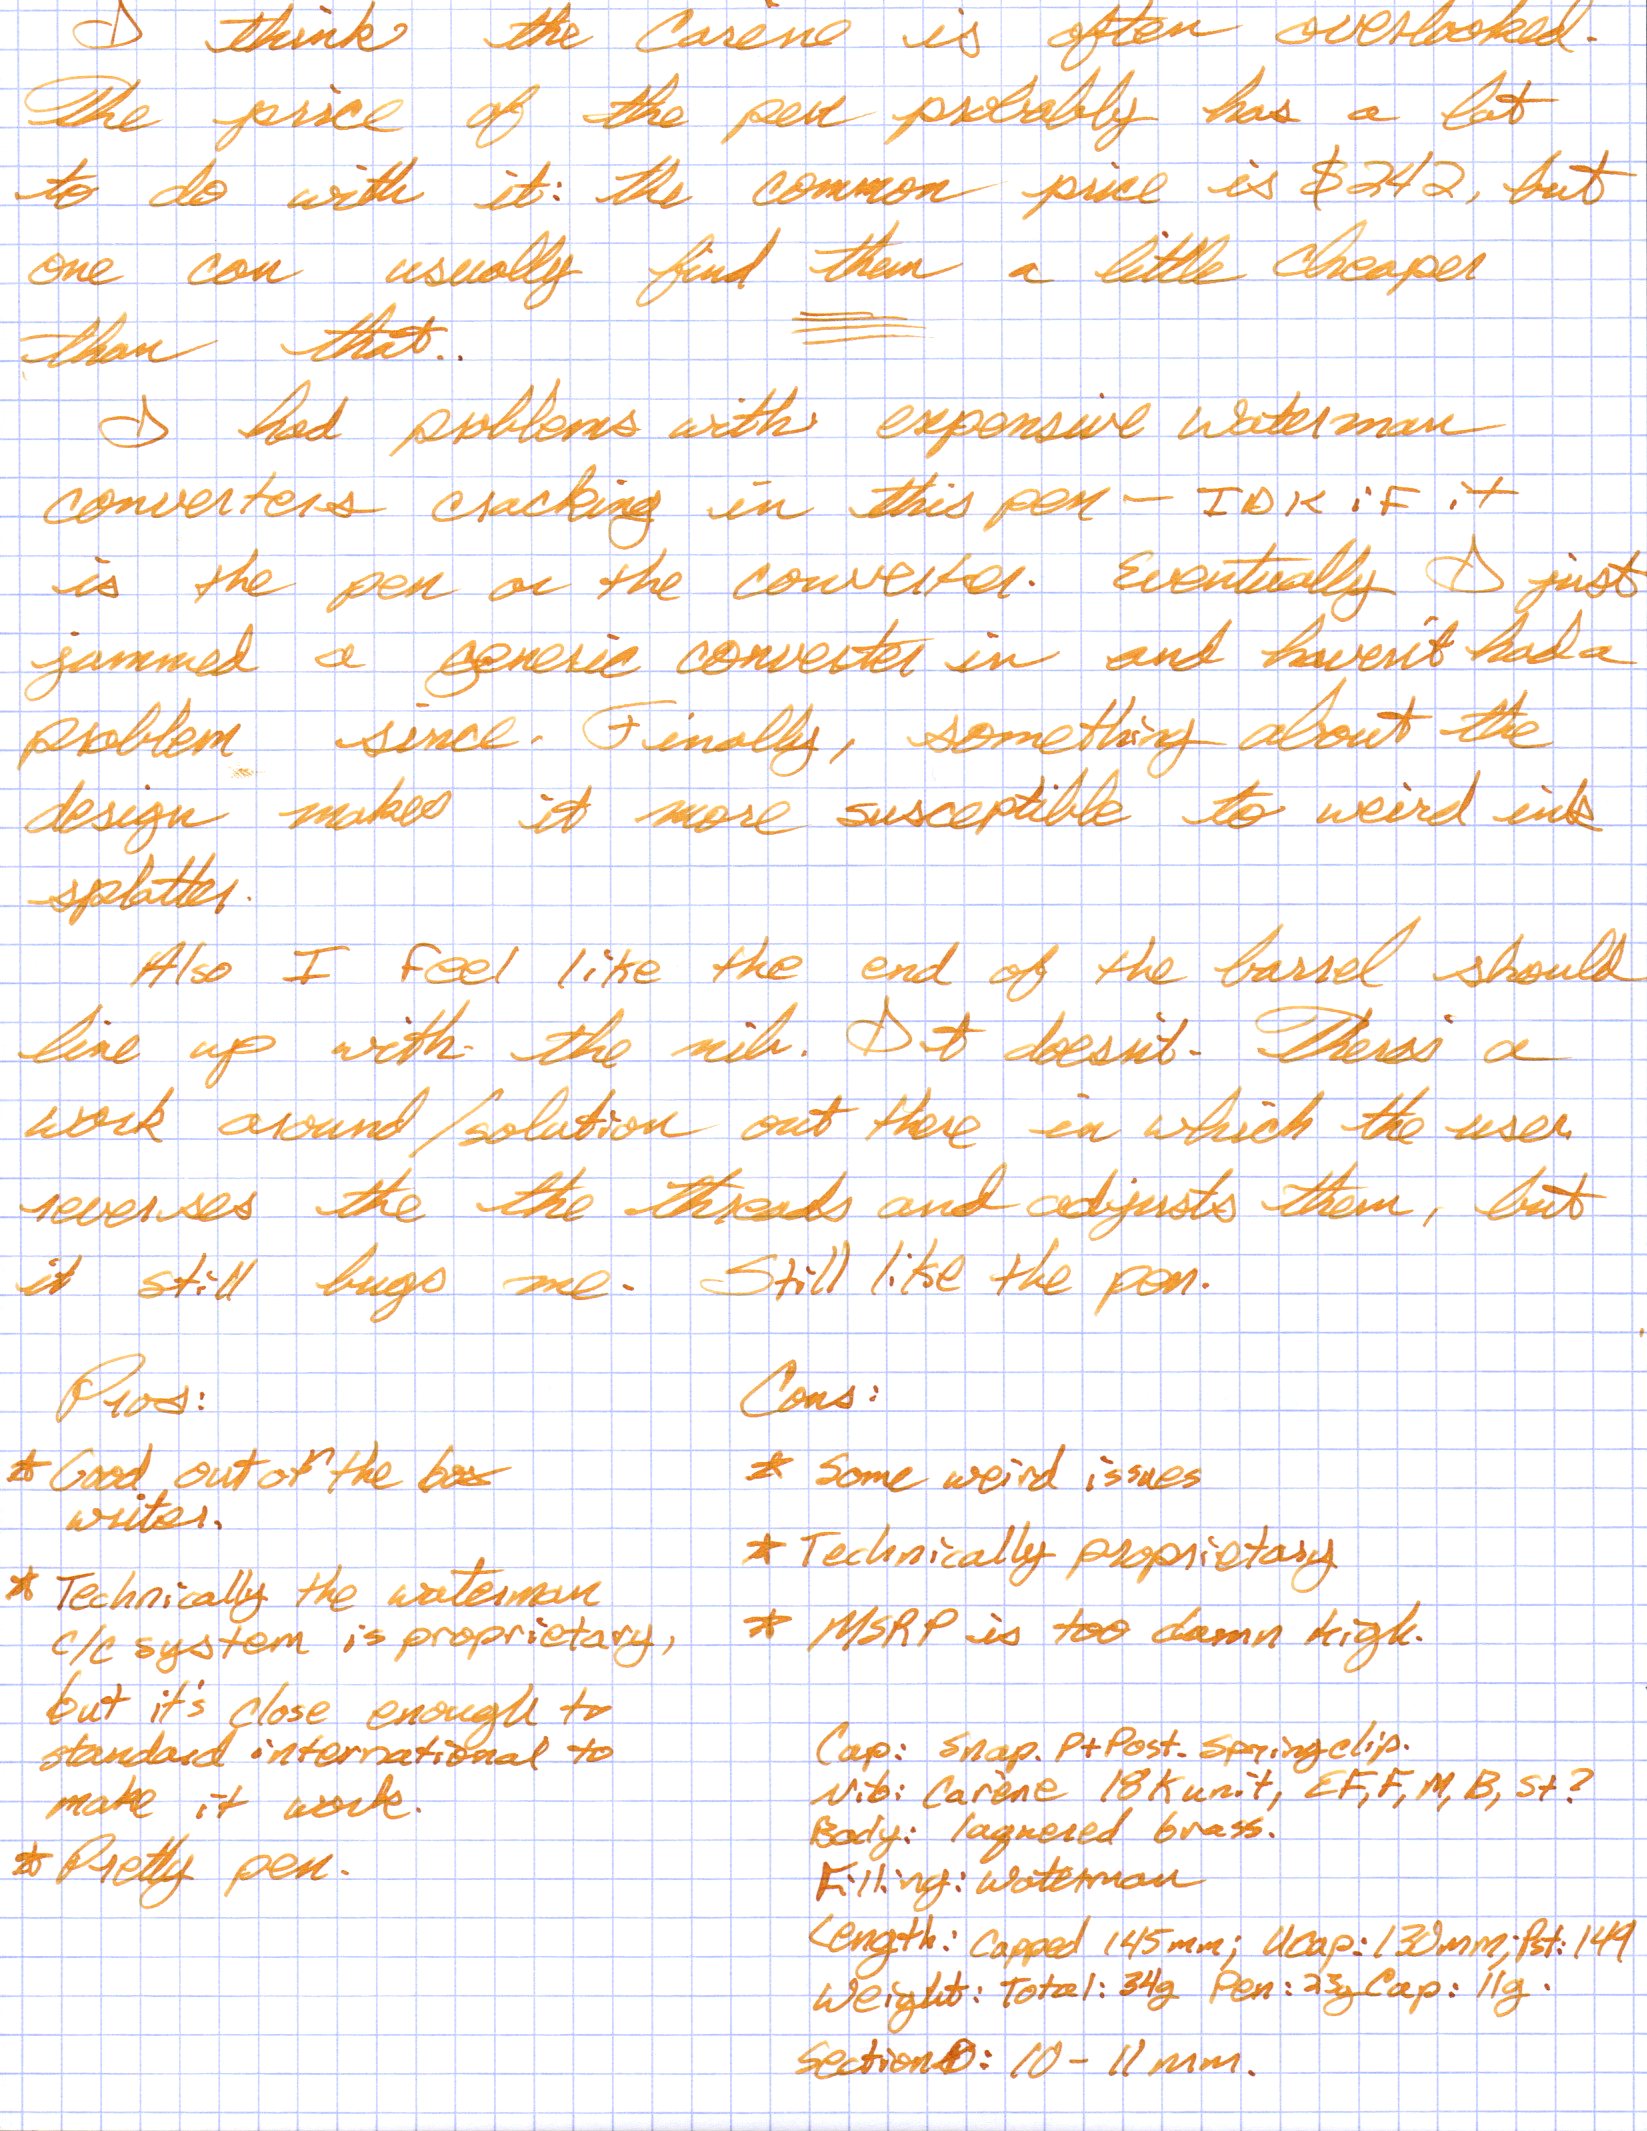 I think the Carène is often overlooked.
The price of the pen probably has a lot
to do with it: the common price is $242, but
one can usually find them a little cheaper
than that..
I had problems with expensive Waterman
converters cracking in this pen - IDK if it
is the pen or the converter. Eventually I just
jammed a generic converter in and haven't had a
problem since. Finally, something about the
design makes it more susceptible to weird ink
splatter.
Also I feel like the end of the barrel should
line up with the nib. It doesn't. There's a
work around/solution out there in which the user
reverses the the threads and adjusts them, but
it still bugs me. Still like the pen.
Pros:
* Good out of the box
writer.
* Technically the waterman
c/c system is proprietary,
but it's close enough to
standard international to
make it work.
* Pretty pen.
Cons:
* Some weird issues
* Technically proprietary
* MSRP is too damn high.
Cap: Snap. P+Post. Spring clip.
Nib: Carène 18K unit, EF, F, M, B, St?
Body: laquered brass.
Filling: Waterman
Length: Capped 145mm; Ucap: mm; Pst: 149
Weight: Total: 34g Pen: 23g Cap: 11g.
Section : 10 - 11 mm.